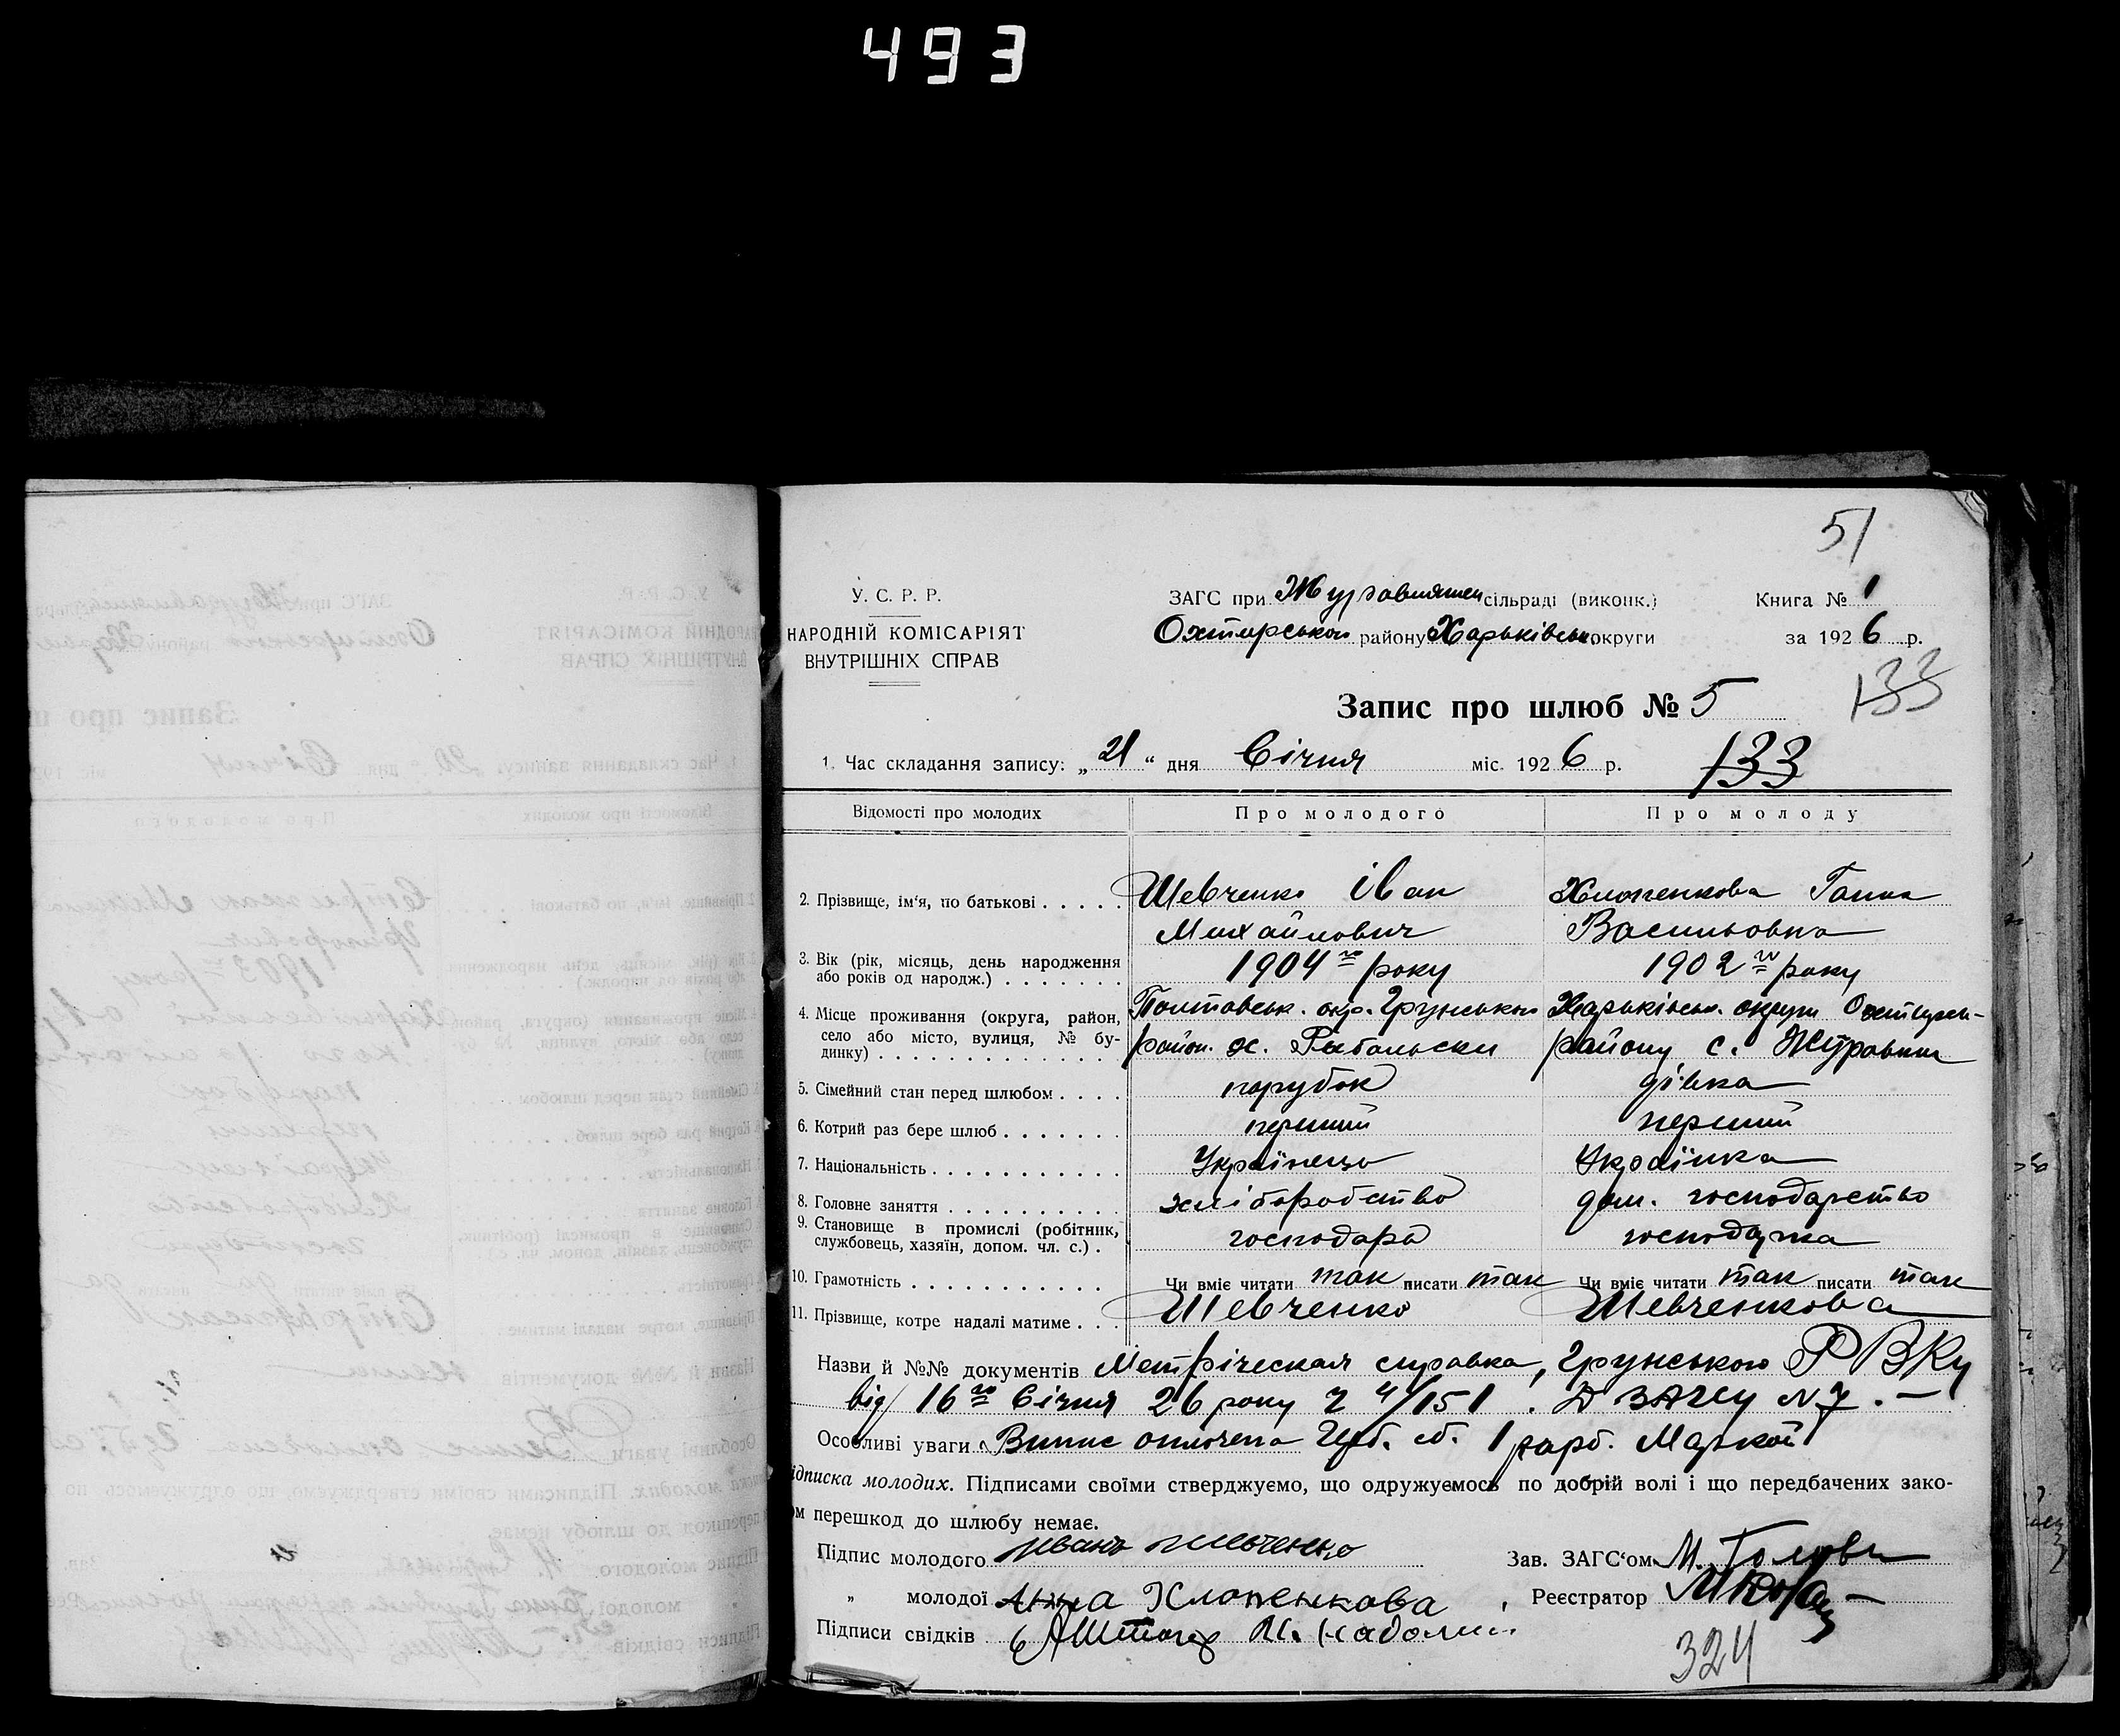 493
51
У. С. Р. Р.
НАРОДНІЙ КОМІСАРІЯТ
ВНУТРІШНІХ СПРАВ
ЗАГС при сільраді (виконк.) Книга № 1
Охтирськои району Харьківськ округи за 1926 р.
133
Запис про шлюб № 5
1. Час складання запису: „21“ дня Січня міс. 1926 р.
133
Відомості про молодих Про молодого Про молоду
2. Прізвище, ім'я, по батькові . . . . . Шевченко Іван Хлопенкова Ганна
Михайлович Васильовна
3. Вік (рік, місяць, день народження або років од народж.) . . . . . . . 1904 го року 1902 го року
4. Місце проживання (округа, район, село або місто, вулиця, № будинку) . . . . . . . . . . . . . . Полтавськ. окр. Грунського Харьківськ. округи Охтирсь-
район. х. Рибальски району с. Журавни
5. Сімейний стан перед шлюбом . . . . парубок дівка
6. Котрий раз бере шлюб . . . . . . . перший перший
7. Національність . . . . . . . . . . . Українець Українка
8. Головне заняття . . . . . . . . . . хліборобство дом. господарство
9. Становище в промислі (робітник, службовець, хазяїн, допом. чл. с.) . господарь
10. Грамотність . . . . . . . . . . . Чи вміє читати так писати так Чи вміє читати так писати так
11. Прізвище, котре надалі матиме . . . Шевченко Шевченкова
Назви й №№ документів Метріческая справка, Грунського РВКу
від 16го Січня 26 року ч 4/151. №7. —
Особливі уваги Випис оплочена Герб. сб. 1 карб. Маркой
ідписка молодих. Підписами своїми стверджуємо, що одружуємось по добрій волі і що передбачених зако-
ом перешкод до шлюбу немає.
Підпис молодого Иванъ Шевченко Зав. ЗАГС'ом М.
„ молодої Анна Хлопенкова Реєстратор
Підписи свідків
324